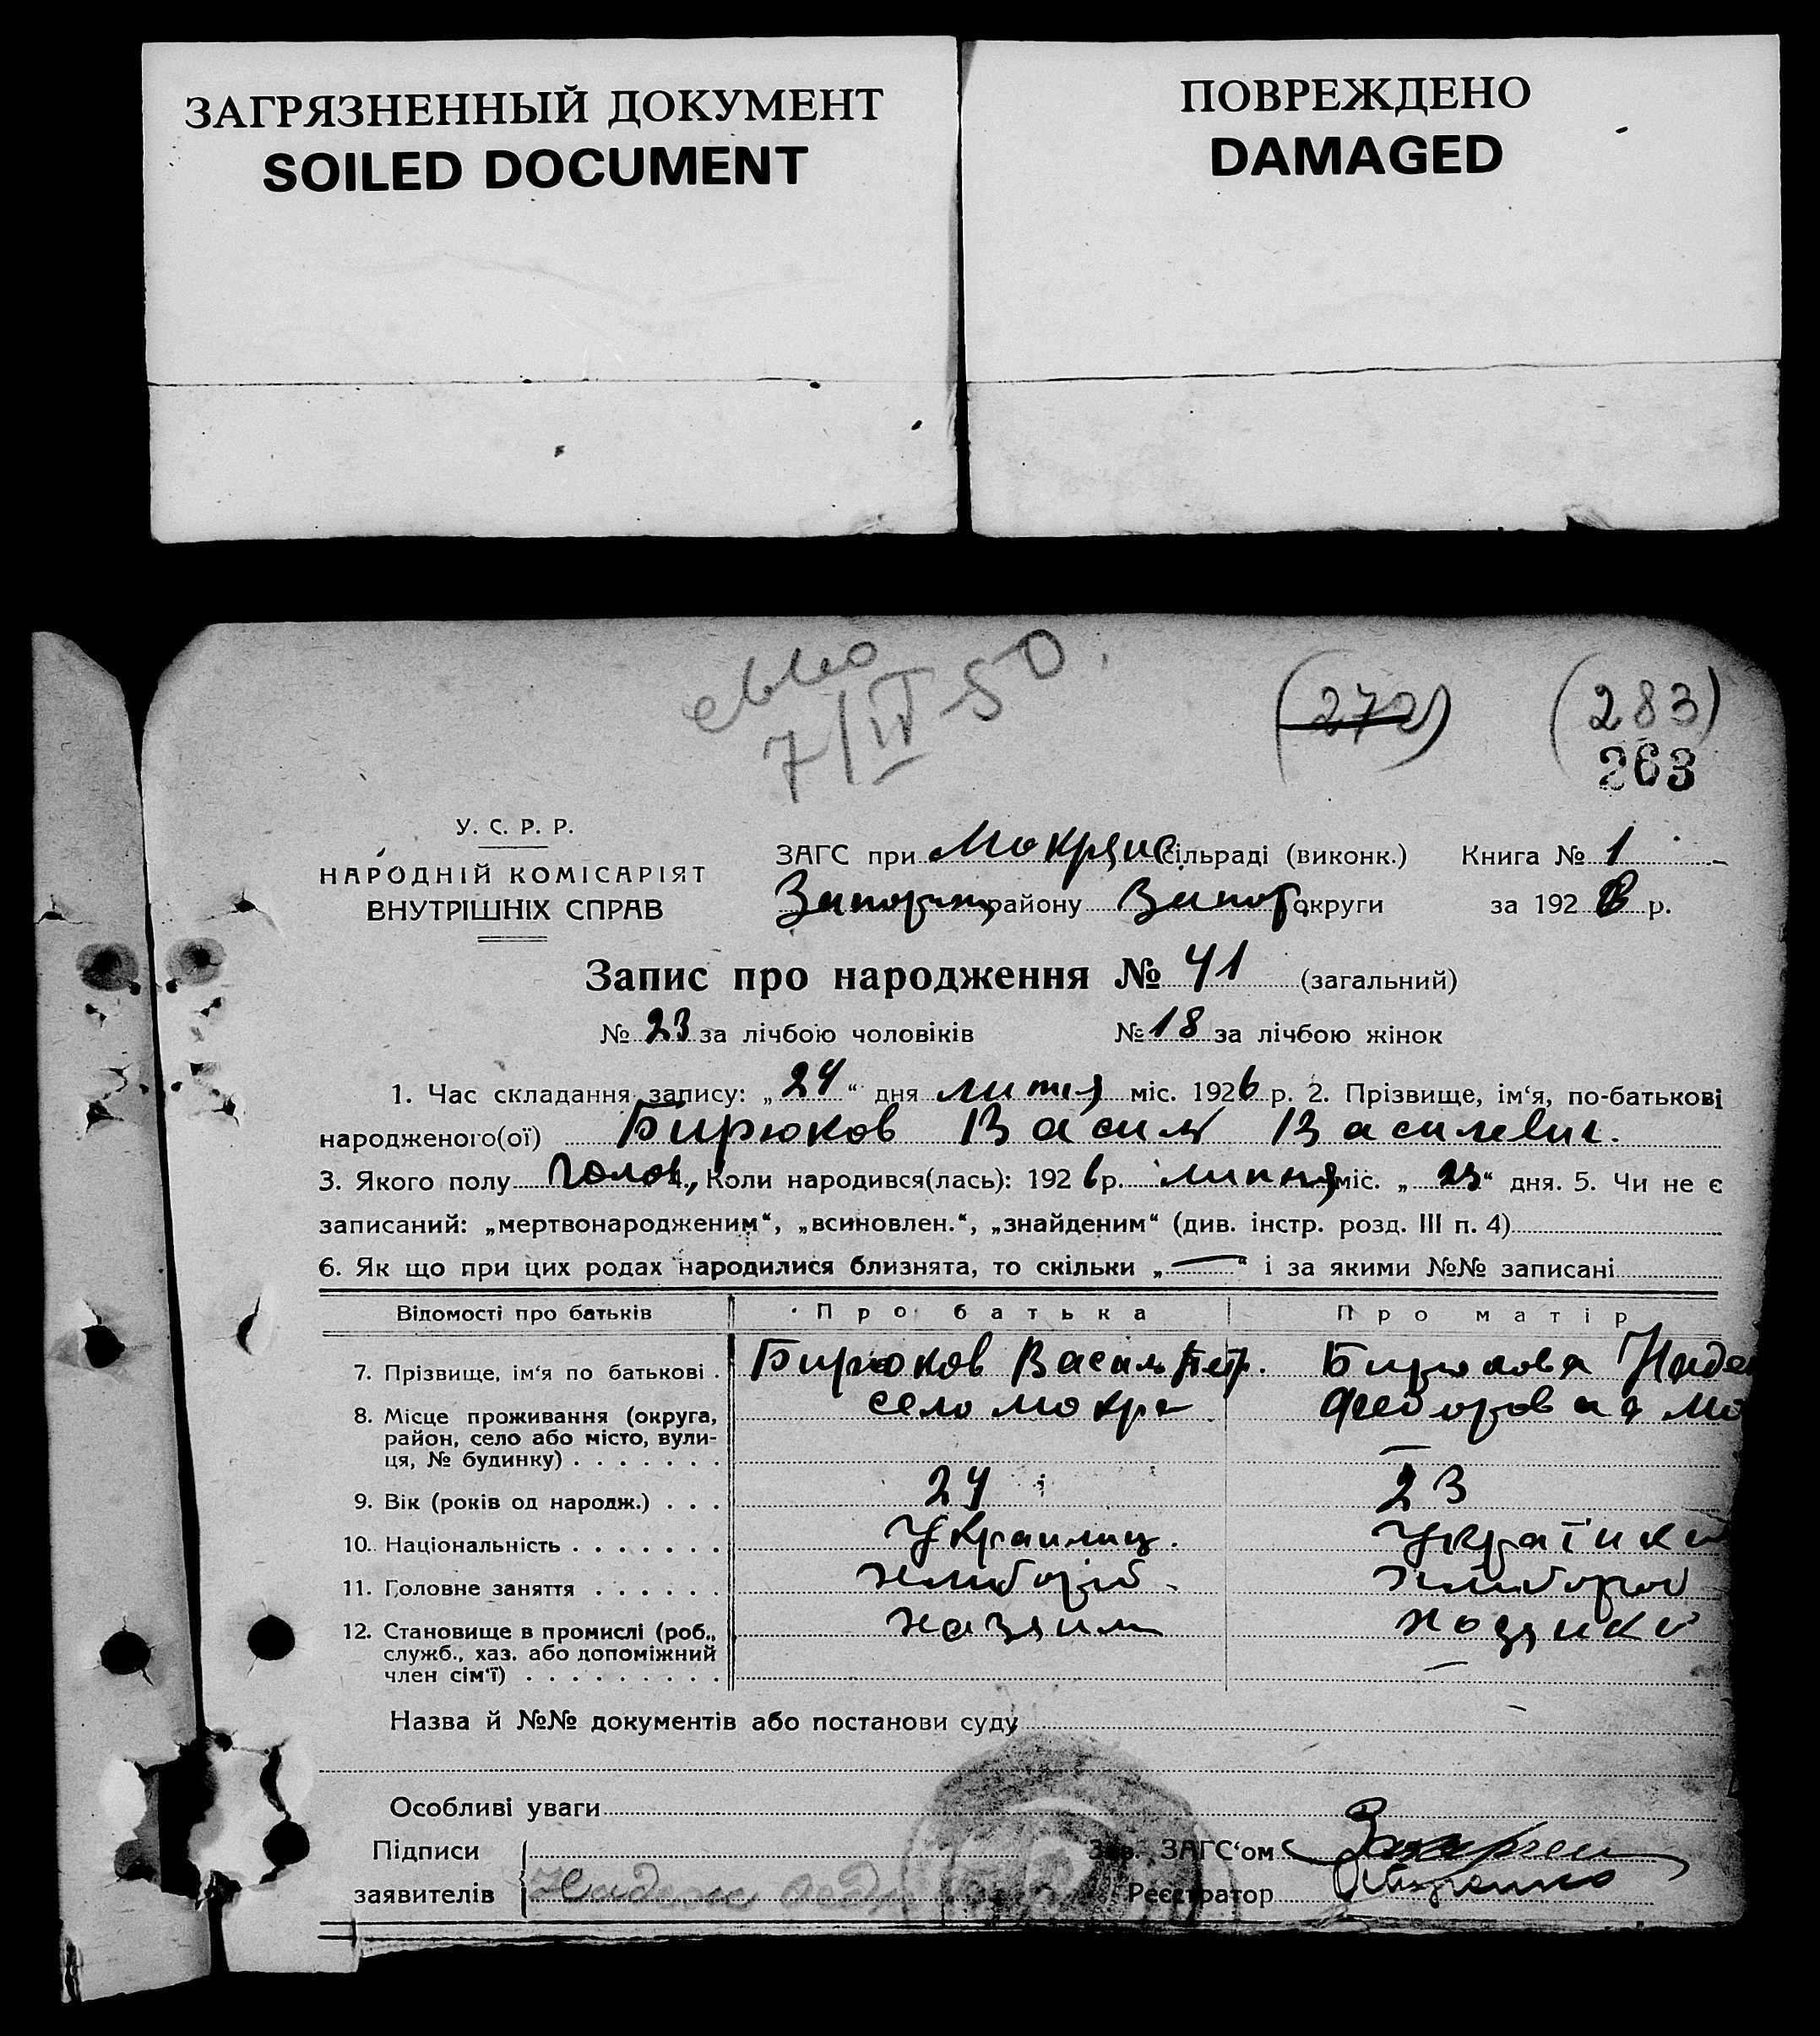 ЗАГРЯЗНЕННЫЙ ДОКУМЕНТ
SOILED DOCUMENT
ПОВРЕЖДЕНО
DAMAGED
7/IV 50.
(272) (283)
263
У. С. Р. Р.
НАРОДНІЙ КОМІСАРІЯТ
ВНУТРІШНІХ СПРАВ
ЗАГС при Мокрянс сільраді (виконк.) Книга № 1
району Запор. округи за 192 р.
Запис про народження № 41 (загальний)
№ 23 за лічбою чоловіків № 18 за лічбою жінок
1. Час складання запису: „24“ дня міс. 1926 р. 2. Прізвище, ім‘я, по-батькові
народженого(ої) Бирюков Василь Василевич.
3. Якого полу Чолов., Коли народився(лась): 1926 р. липня міс. „23“ дня. 5. Чи не є
записаний: „мертвонародженим“, „всиновлен.“, „знайденим“ (див. інстр. розд. III п. 4)
6. Як що при цих родах народилися близнята, то скільки „—“ і за якими №№ записані
Відомості про батьків Про батька Про матір
7. Прізвище, ім‘я по батькові . Бирюков Василь Петр. Бирюкова Наде
8. Місце проживання (округа, село Мокра Федорова с Мо
район, село або місто, вули-
ця, № будинку) . . . . . . . —
9. Вік (років од народж.) . . . 24 23
10. Національність . . . . . . . Украинец. Украї
11. Головне заняття . . . . . . Хлібороб. Хлібороб
12. Становище в промислі (роб.,
служб., хаз. або допоміжний
член сім‘ї) . . . . . . . . . —
Назва й №№ документів або постанови суду
Особливі уваги
Підписи Зав. ЗАГС‘ом
заявителів Реєстратор